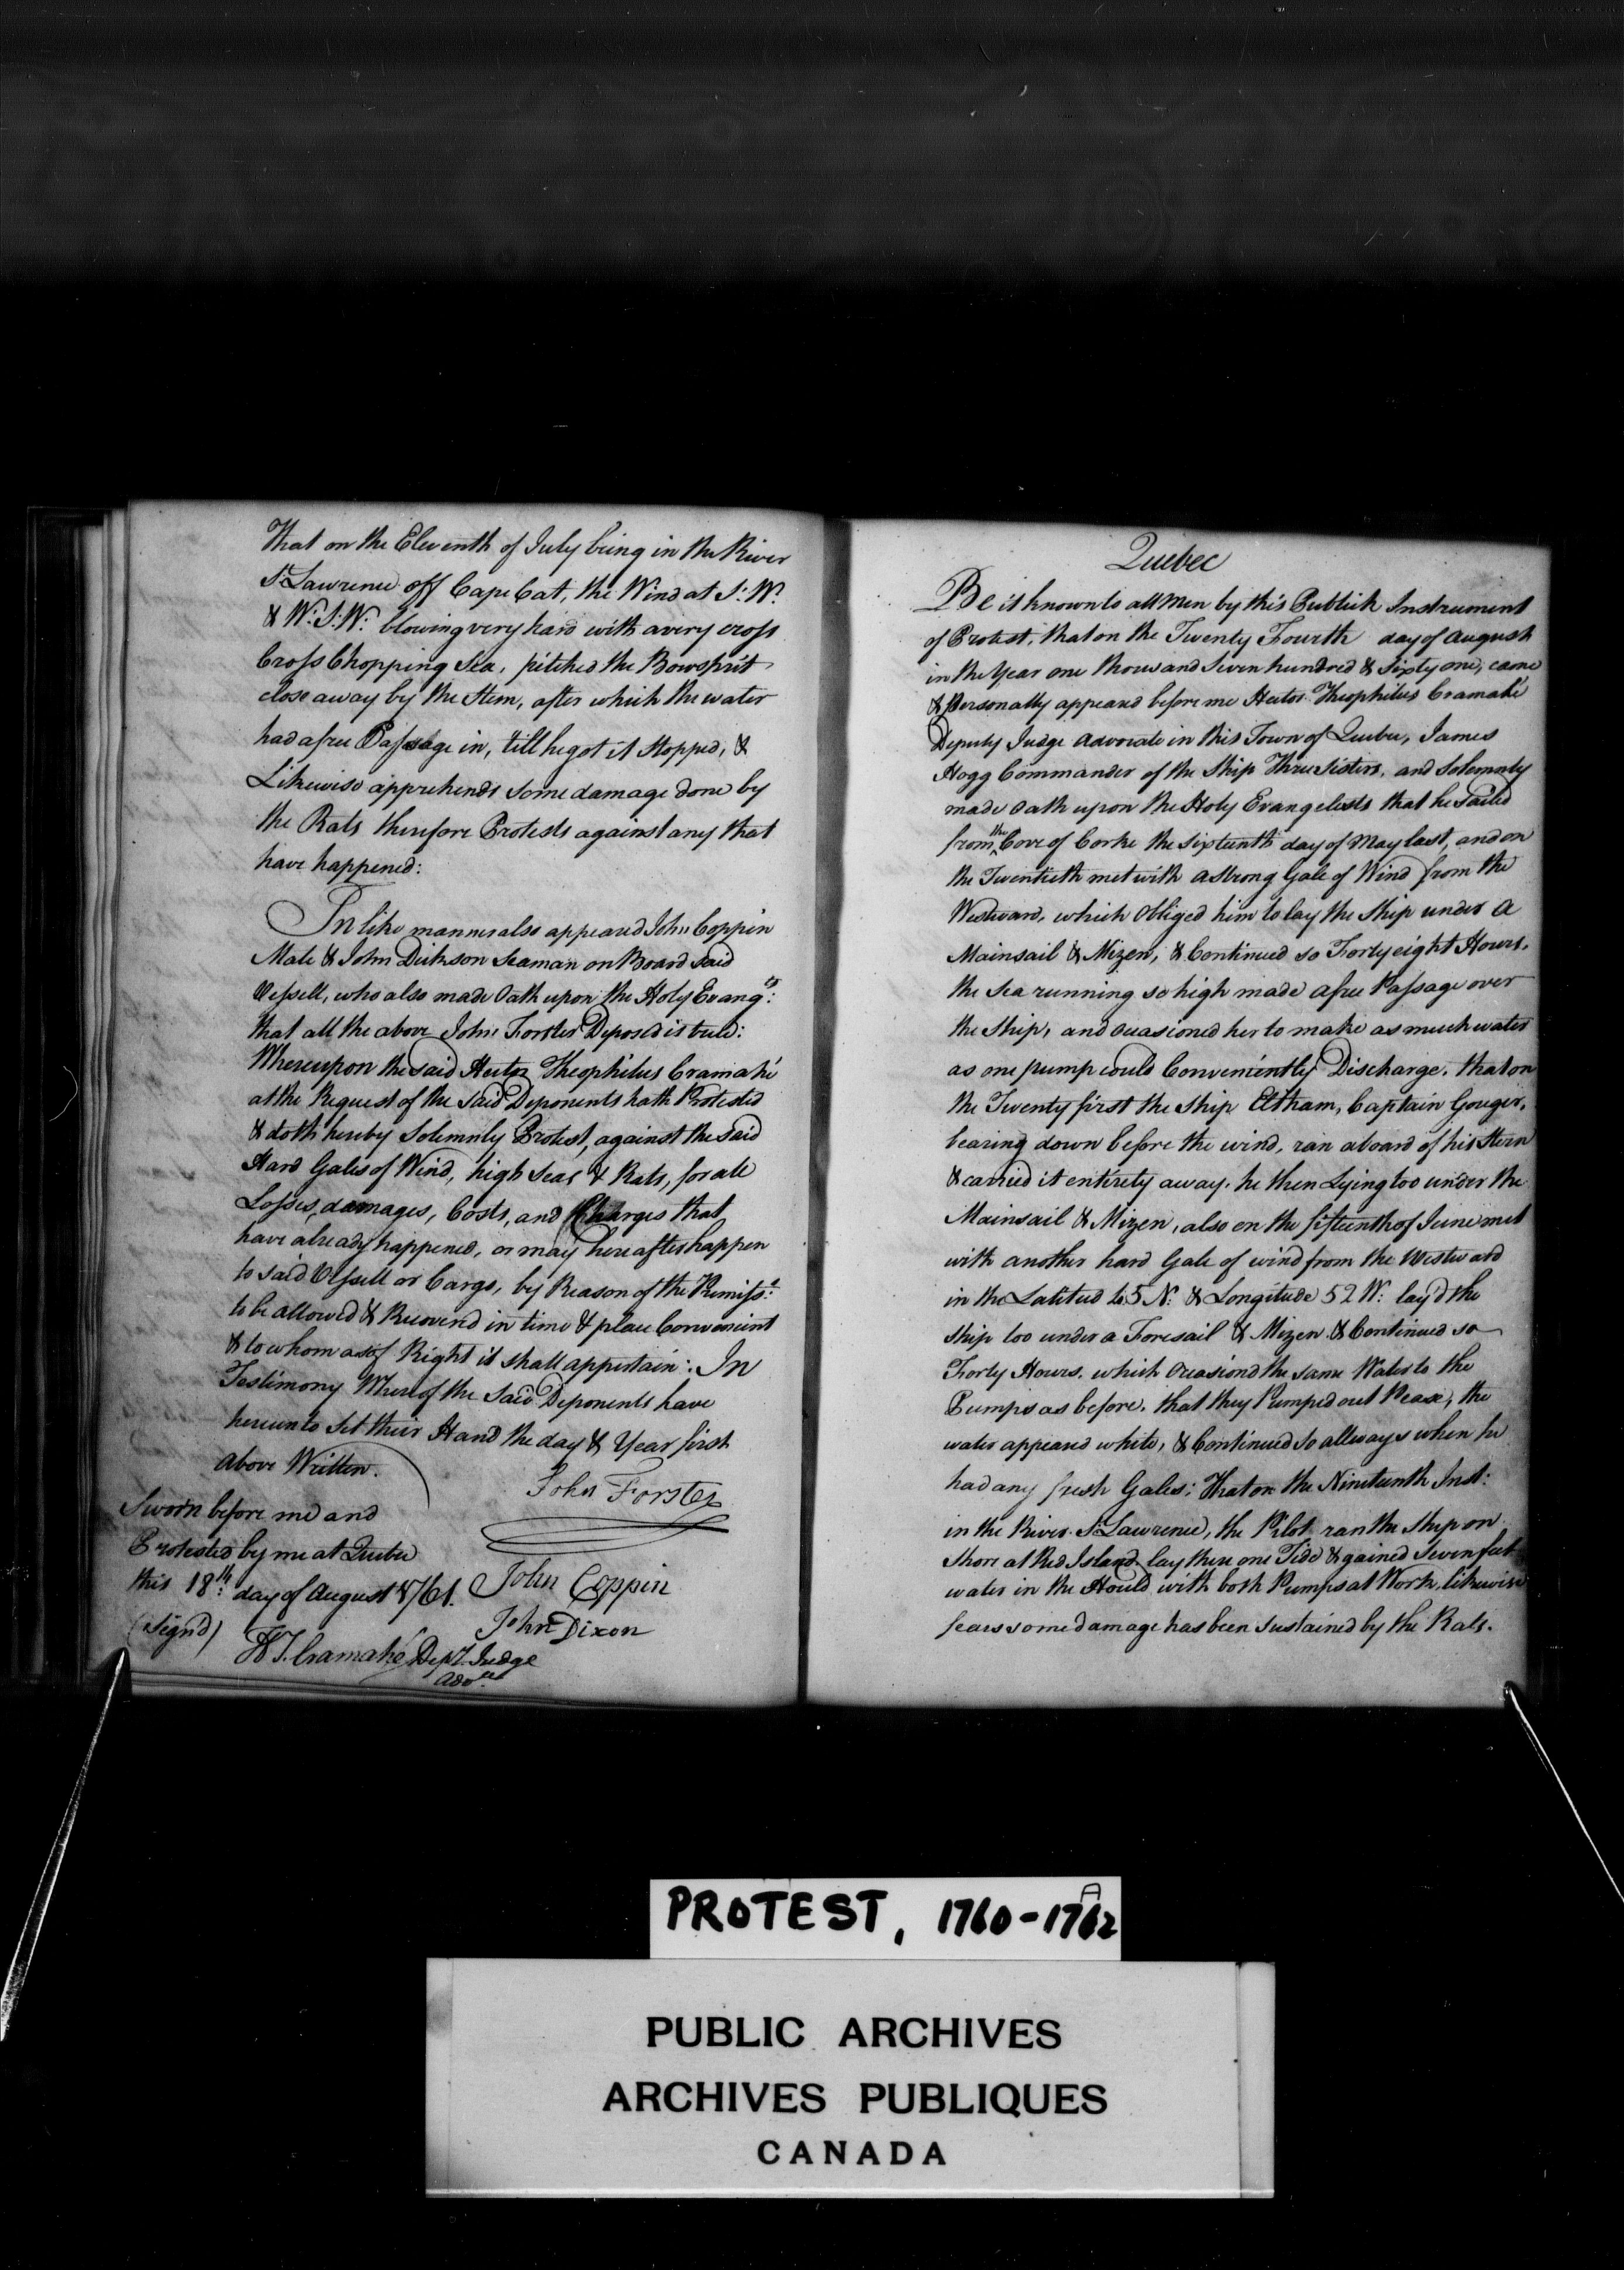 That on the Eleventh of July being in the River
St Lawrence off Cape Cat, the Wind at S:W:
& W:S:W: blowing very hard with a very cross
Cross Chopping Sea, pitched the Bowsprit
close away by the Stem, after which the water
had a free Passage in, till he got it Stopped, &
Likewise apprehends some damage done by
the Rats therefore Protests against any that
have happened:
In like manner also appeared John Coppin
Mate & John Dickson Seaman on Board said
Vessell, who also made Oath upon the Holy Evang:ts
that all the above John Forster Deposed is true:
Whereupon the said Hector Theophilus Cramahé
at the Request of the Said Deponents hath Protested
& doth hereby Solemnly Protest, against the said
Hard Gales of Wind, high Seas & Rats, for all
Losses, damages, Costs, and Charges that
have already happened, or may hereafter happen
to said Vessell or Cargo, by Reason of the Premiss:s
to be allowed & Recoverd in time & place Convenient
& to whom as of Right it shall appertain: In
Testimony Whereof the Said Deponents have
hereunto Set their Hand the day & Year first
above Written.
John Forster
Sworn before me and
Protested by me at Quebec
this 18th: day of August 1761.
John Coppin
John Dixon
(Sign'd)
H T. Cramahé Depy. Judge
Advte
Quebec
Be it known to all Men by this Publick Instrument
of Protest, that on the Twenty Fourth day of August
in the Year one thousand Seven hundred & Sixty one, came
& Personally appeared before me Hector Theophilus Cramahé
Deputy Judge Advocate in this Town of Quebec, James
Hogg Commander of the Ship Three Sisters, and Solemnly
made Oath upon the Holy Evangelists that he Sailed
from the Cove of Corke the Sixteenth day of May last, and on
the Twentieth met with a strong Gale of Wind from the
Westward, which Obliged him to lay the Ship under a
Mainsail & Mizen, & Continued so Forty eight Hours.
the Sea running so high made a free Passage over
the Ship, and occasioned her to make as much water
as one pump could Conveniently Discharge. that on
the Twenty first the Ship Eltham, Captain Gouger,
bearing down before the wind, ran aboard of his Stern
& carried it entirely away. he then Lying too under the
Mainsail & Mizen, also on the fifteenth of June met
with another hard Gale of wind from the Westward
in the Latitud 45 N: & Longitude 52 W: lay'd the
Ship too under a Foresail & Mizen & Continued so
Forty Hours. which Occasiond the same Water to the
Pumps as before. that they Pumped out Pease, the
water appeared white, & Continued so allways when he
had any fresh Gales; That on the Nineteenth Inst:
in the River St Lawrence, the Pilot ran the Ship on
Shore at Red Island lay there one Tide & gained Seven feet
water in the Hould with both Pumps at Work, likewise
fears some damage has been sustained by the Rats.
PROTEST, 1760-1762
PUBLIC ARCHIVES
ARCHIVES PUBLIQUES
CANADA